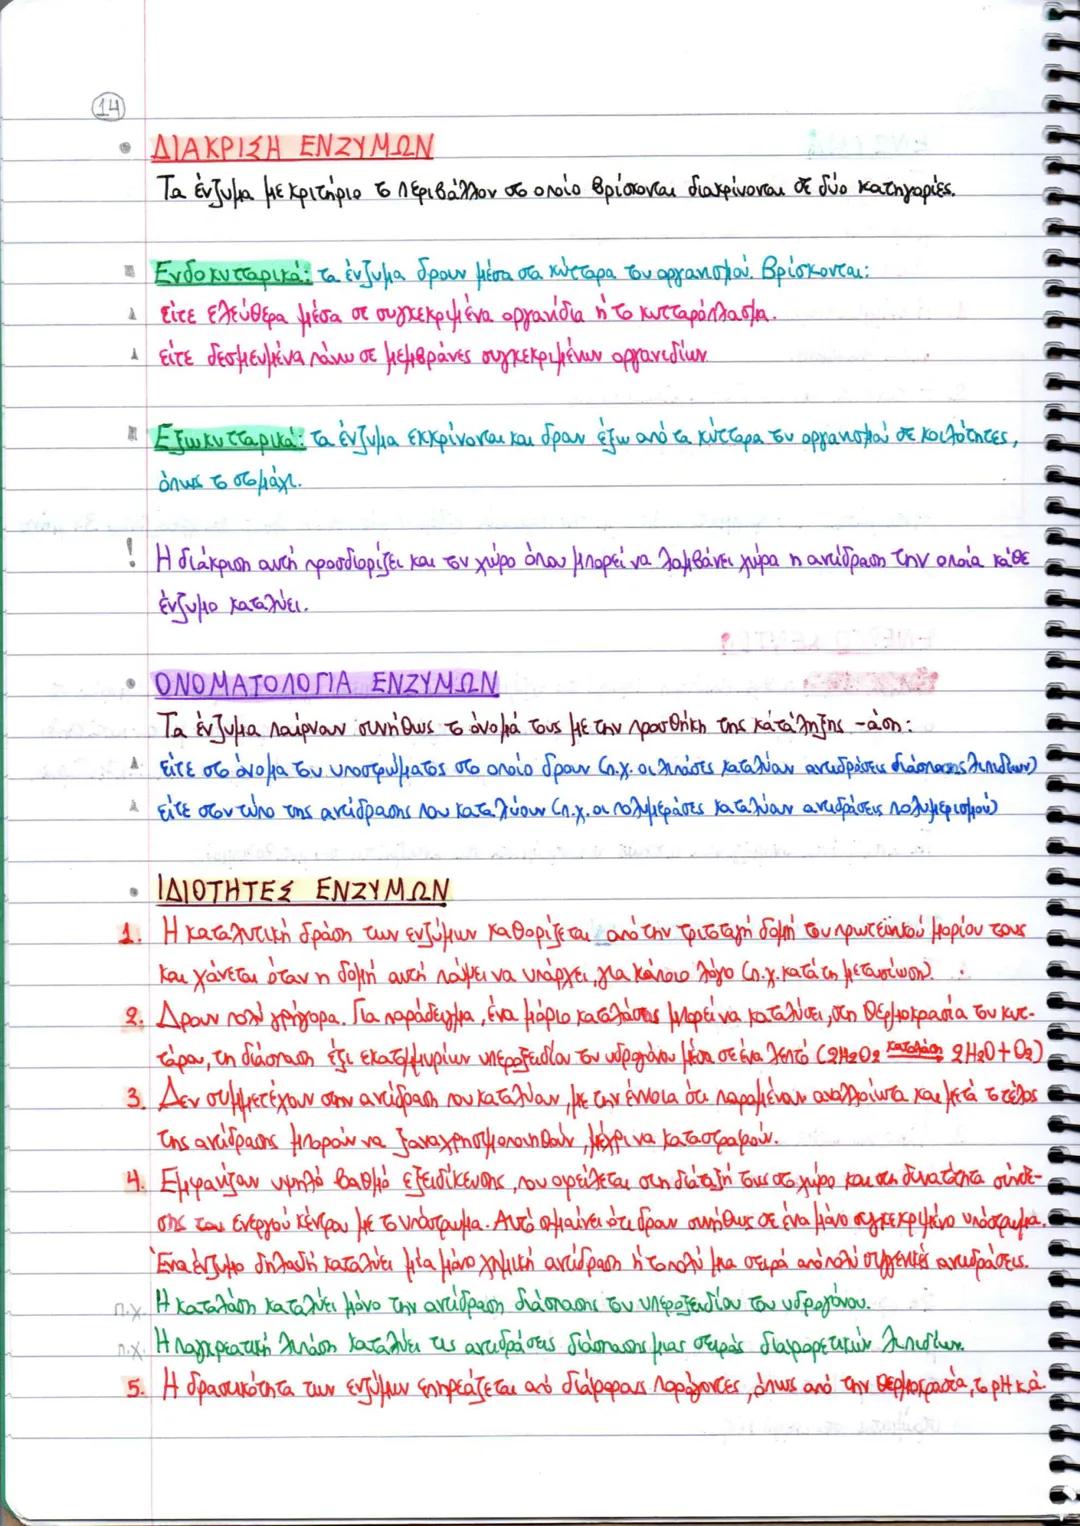 14
• ΔΙΑΚΡΙΣΗ ΕΝΖΥΜΩΝ
Τα ένζυμα με κριτήριο το περιβάλλον στο οποίο βρίσκονται διακρίνονται σε δύο κατηγορίες.
Ενδοκυτταρικά: τα ένζυμα δρουν μέσα στα κύτταρα του οργανισμού. Βρίσκονται:
είτε ελεύθερα μέσα σε συγκεκριμένα οργανίδια ή το κυτταρόπλασμα.
είτε δεσμευμένα πάνω σε μεμβράνες συγκεκριμένων οργανιδίων
Εξωκυτταρικά: τα ένζυμα εκκρίνονται και δρουν έξω από τα κύτταρα του οργανισμού σε κοιλότητες,
όπως το στομάχι.
! Η διάκριση αυτή προσδιορίζει και τον χώρο όπου μπορεί να λαμβάνει χώρα η αντίδραση την οποία κάθε
ένζυμο καταλύει.
• ΟΝΟΜΑΤΟΛΟΓΙΑ ΕΝΖΥΜΩΝ
Τα ένζυμα παίρνουν συνήθως το όνομά τους με την προσθήκη της κατάληξης -άση:
είτε στο όνομα του υποστρώματος στο οποίο δρουν (π.χ. οι λιπάσες καταλύουν αντιδράσεις διάσπασης λιπιδίων)
είτε στον τύπο της αντίδρασης που καταλύουν (π.χ. οι πολυμεράσες καταλύουν αντιδράσεις πολυμερισμού)
• ΙΔΙΟΤΗΤΕΣ ΕΝΖΥΜΩΝ
1. Η καταλυτική δράση των ενζύμων καθορίζεται από την τριτοταγή δομή του πρωτεϊνικού μορίου τους
και χάνεται όταν η δομή αυτή πάψει να υπάρχει, για κάποιο λόγο (π.χ. κατά τη μετουσίωση).
2. Δρουν πολύ γρήγορα. Για παράδειγμα, ένα μόριο καταλάσης μπορεί να καταλύσει, στη θερμοκρασία του κυτ-
τάρου, τη διάσπαση έξι εκατομμυρίων υπεροξειδίου του υδρογόνου μέσα σε ένα λεπτό (2H2O2 καταλάση 2H2O + O2)
3. Δεν συμμετέχουν στην αντίδραση που καταλύουν, με την έννοια ότι παραμένουν αναλλοίωτα και μετά το τέλος
της αντίδρασης μπορούν να ξαναχρησιμοποιηθούν, μέχρι να καταστραφούν.
4. Εμφανίζουν υψηλό βαθμό εξειδίκευσης, που οφείλεται στη διάταξή τους στο χώρο και στη δυνατότητα σύνδε-
σης του ενεργού κέντρου με το υπόστρωμα. Αυτό σημαίνει ότι δρουν συνήθως σε ένα μόνο συγκεκριμένο υπόστρωμα.
Ένα ένζυμο δηλαδή καταλύει μία μόνο χημική αντίδραση ή το πολύ μια σειρά από πολύ συγγενικές αντιδράσεις.
π.χ. Η καταλάση καταλύει μόνο την αντίδραση διάσπασης του υπεροξειδίου του υδρογόνου.
π.χ. Η παγκρεατική λιπάση καταλύει τις αντιδράσεις διάσπασης μιας σειράς διαφορετικών λιπιδίων.
5. Η δραστικότητα των ενζύμων επηρεάζεται από διάφορους παράγοντες, όπως από την θερμοκρασία, το pH κ.ά.